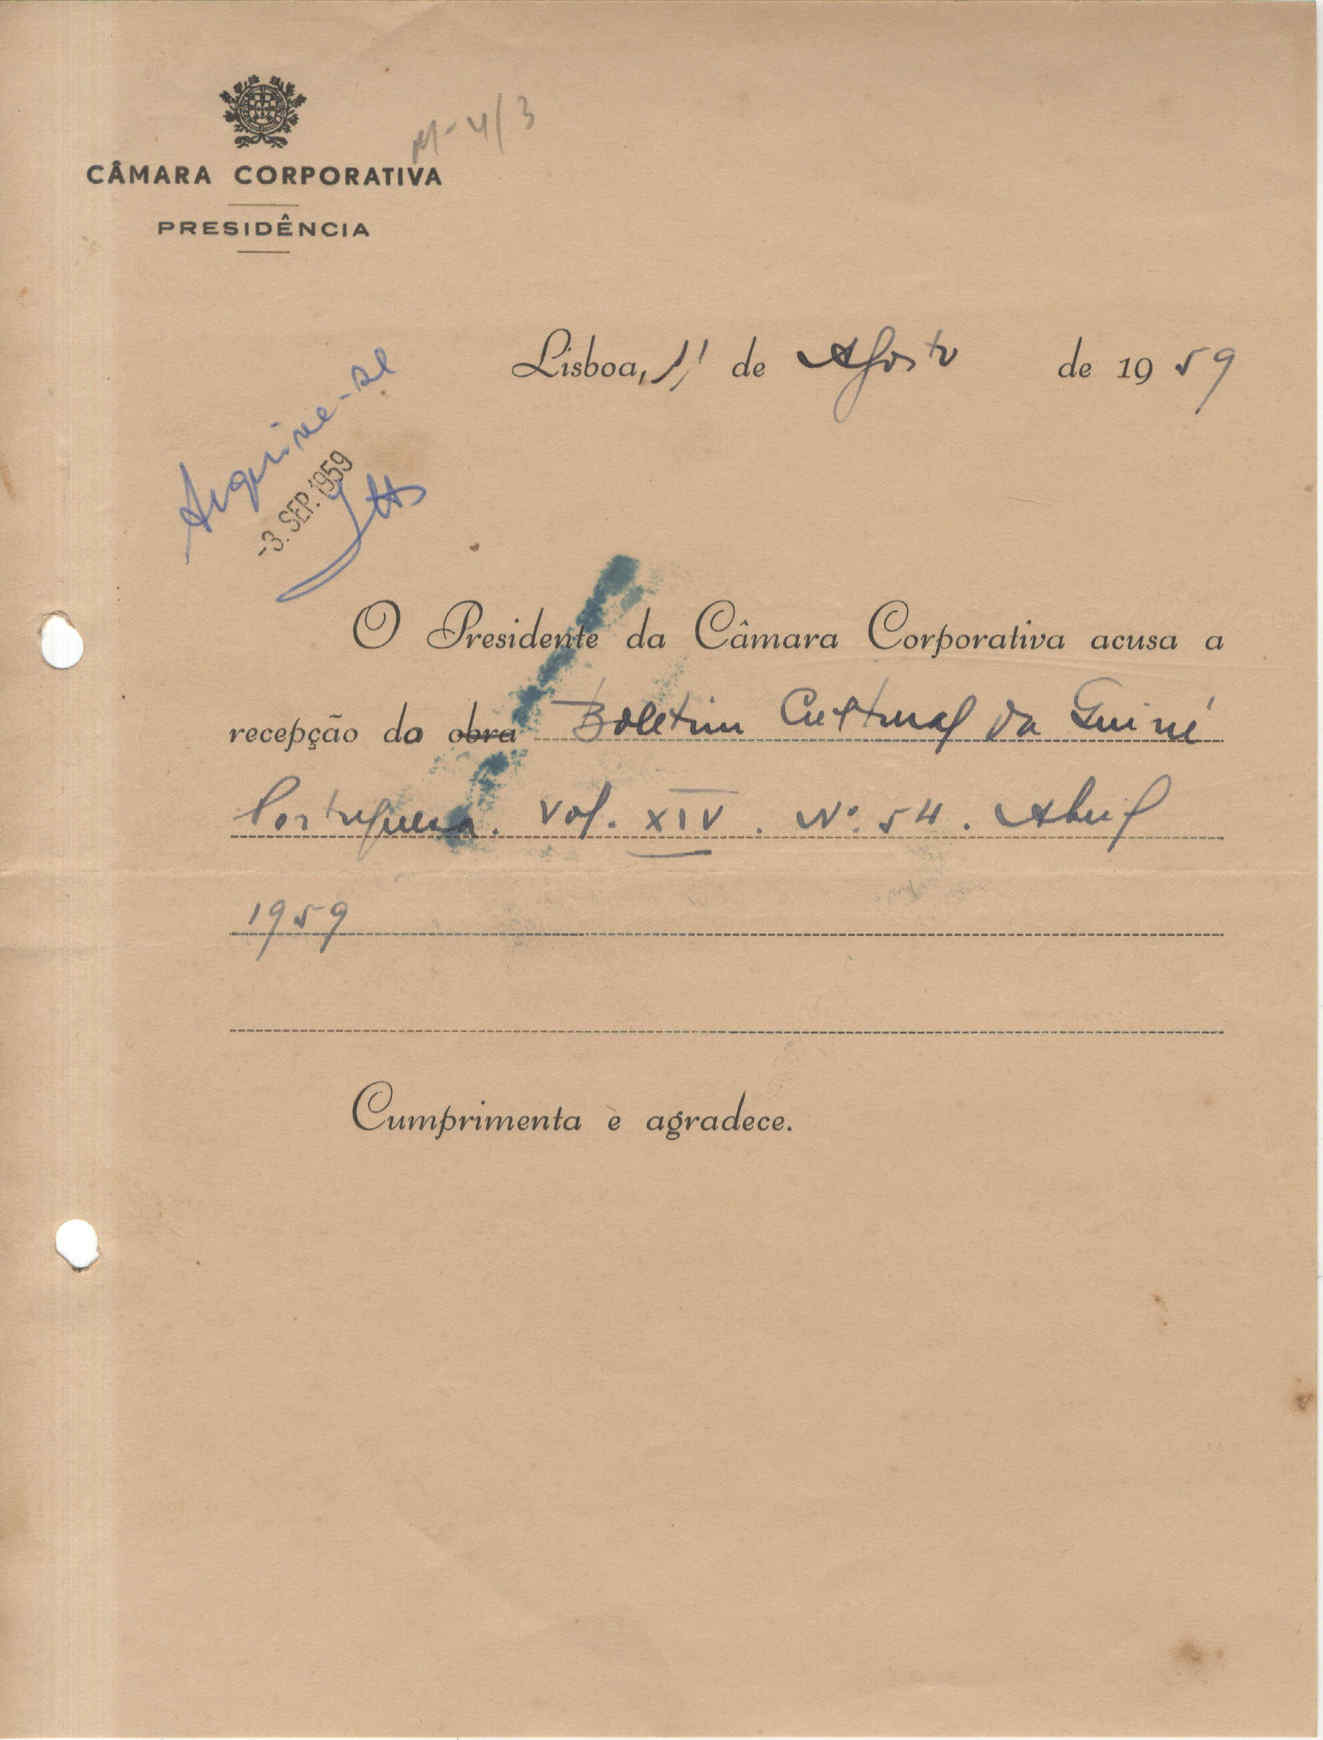 M-4/3
CÂMARA CORPORATIVA
PRESIDÊNCIA
Lisboa, 11 de Agosto de 1959
Arquive-se
-3. SEP. 1959
O Presidente da Câmara Corporativa acusa a
recepção do obra Boletim Cultural da Guiné
Portuguesa. Vol. XIV. Nº. 54. Abril
1959
Cumprimenta e agradece.